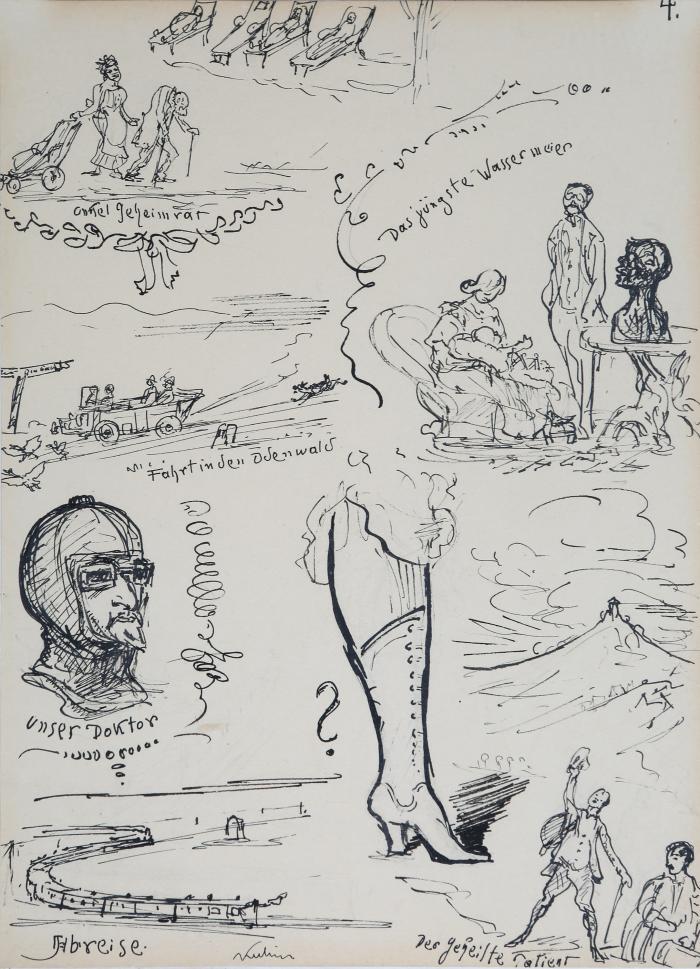 4.
onkel geheimrat
Das jüngste Wassermeier
Fahrt in den Odenwald
unser Doktor
?
Abreise.
Kubin
Der geheilte Patient